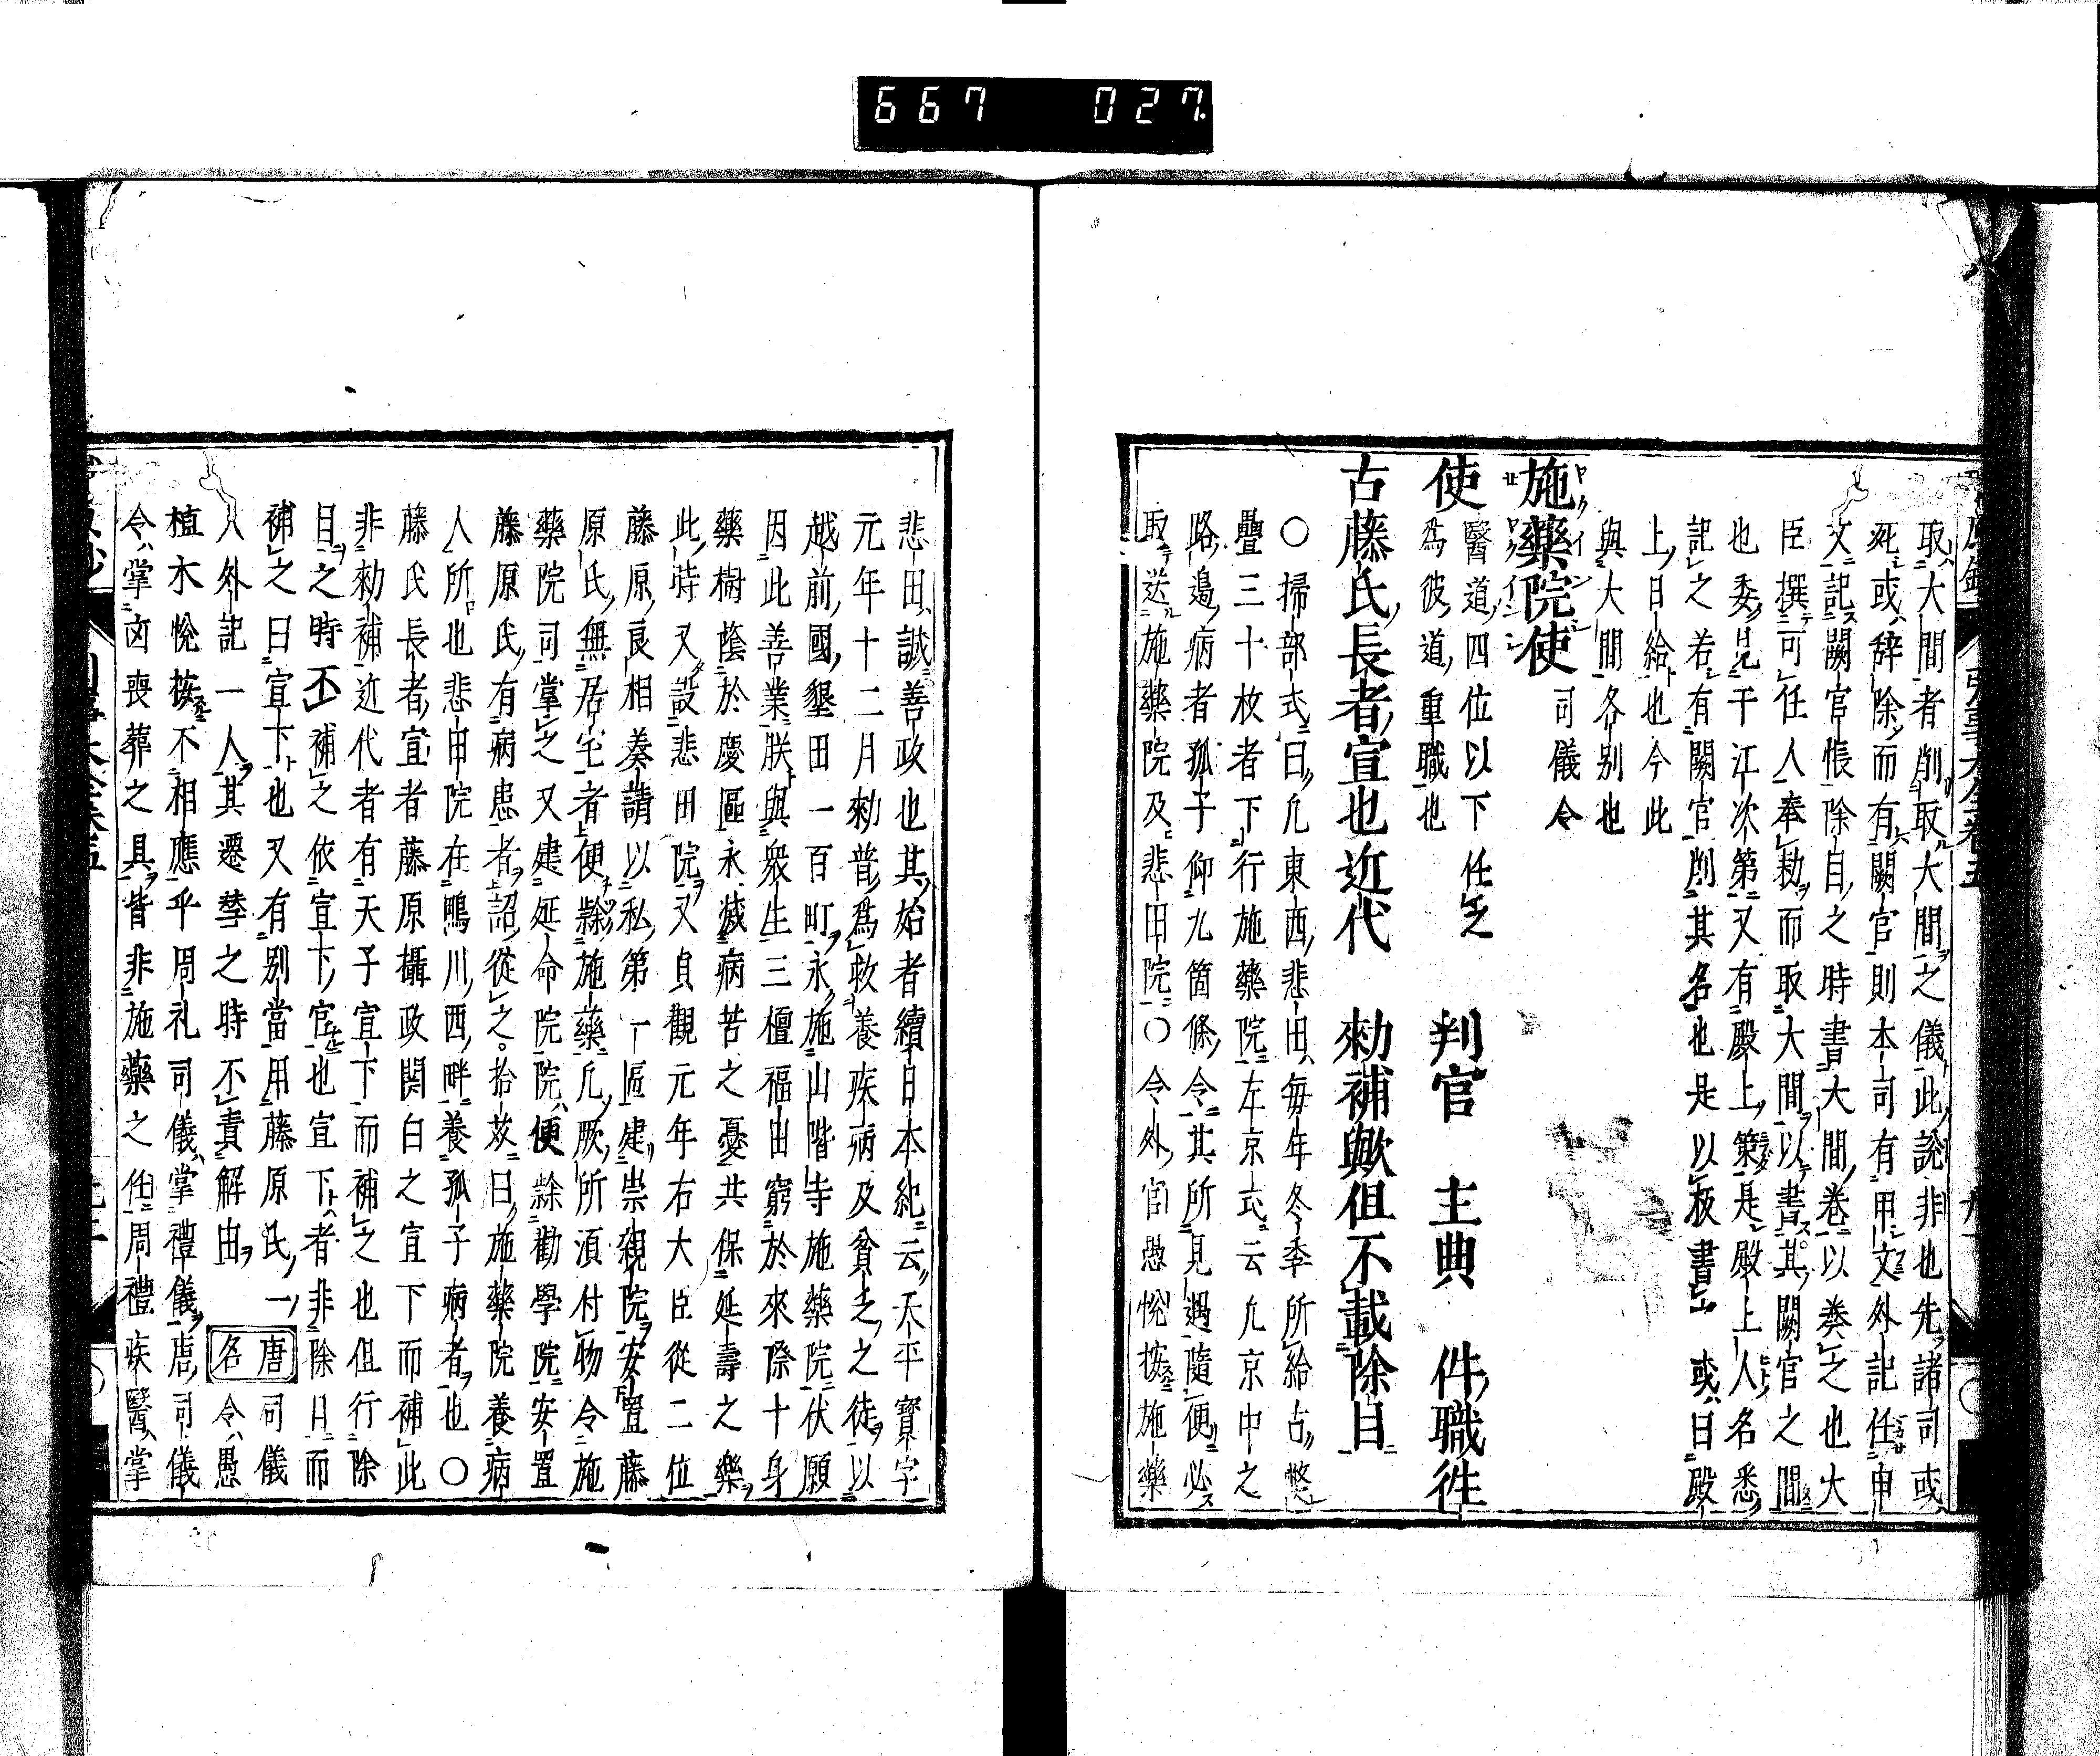 667 027
取大間者削取大間之儀此説非也先諸司或
死或辞除而有闕官則本司有申文外記任申
文記闕官帳除目之時書大間巻以奏之也大
臣撰可任人奉勅而取大間以書其闕官之間
也委見于江次第又有殿上策是殿上人名悉
記之若有闕官削其名也是以板書 或曰殿
上日給也今此
與大間各別也
施藥院使 司儀令
使 醫道四位以下任之 判官 主典 件職徃
為彼道重職也
古藤氏長者宣也近代 勅補歟但不載除目
○掃部式曰凡東西悲田毎年冬季所給古弊
疊三十枚者下行施藥院左京式云凡京中之
路邊病者孤子仰九箇條令其所見遇隨便必
取送施藥院及悲田院○令外官愚恱按施藥
悲田誠善政也其始者續日本紀云天平寳字
元年十二月勅普為救養疾病及貧乏之徒以
越前國墾田一百町永施山階寺施藥院伏願
因此善業朕與衆生三檀福田窮於來際十身
藥樹蔭於慶區永滅病苦之憂共保延壽之樂
此時又設悲田院又貞觀元年右大臣從二位
藤原良相奏請以私第一區建崇親院安置藤
原氏無居宅者便隷施藥凡厥所須付物令施
藥院司掌之又建延命院院便隷勸學院安置
藤原氏有病患者詔從之拾芥曰施藥院養病
人所也悲田院在鴨川西畔養孤子病者也○
藤氏長者宣者藤原攝政関白之宣下而補此
非勅補近代者有天子宣下而補之也但行除
目之時不補之依宣下官也宣下者非除目而
補之曰宣下也又有別當用藤原氏一 唐 司儀
人外記一人其遷替之時不責解由 名 令愚
植木恱按不相應乎周礼司儀掌禮儀唐司儀
令掌凶喪葬之具皆非施藥之任周禮疾醫掌